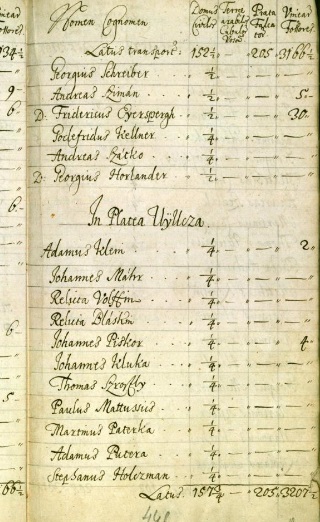 Nomen Cognomen Domus Civiles Terræ Vinear Fossores
Latus transport: 152½ " 205 " 3166½
Georgius Schreiber ½ " — " — "
Andreas Ziman ½ " — " 5 "
D: Fridericus Eyerspergh ½ " — " 30 "
Godefridus Kellner ¼ " — " — "
Andreas Szátko ¼ " — " — "
D: Georgius Horlander ½ " — " — "
In Platea Uÿllcza.
Adamus Klem ¼ " — " 2 "
Johannes Máhr ¼ " — " — "
Relicta Volffin ¼ " — " — "
Relicta Bláskin ¼ " — " — "
Johannes Piskor ¼ " — " 4 "
Johannes Kluka ¼ " — " — "
Thomas ¼ " — " — "
Paulus Mattussiis ¼ " — " — "
Martinus Paterka ¼ " — " — "
Adamus Putera ¼ " — " — "
Stephanus Holczman ¼ " — " — "
Latus. 157¾ " 205 " 3207½